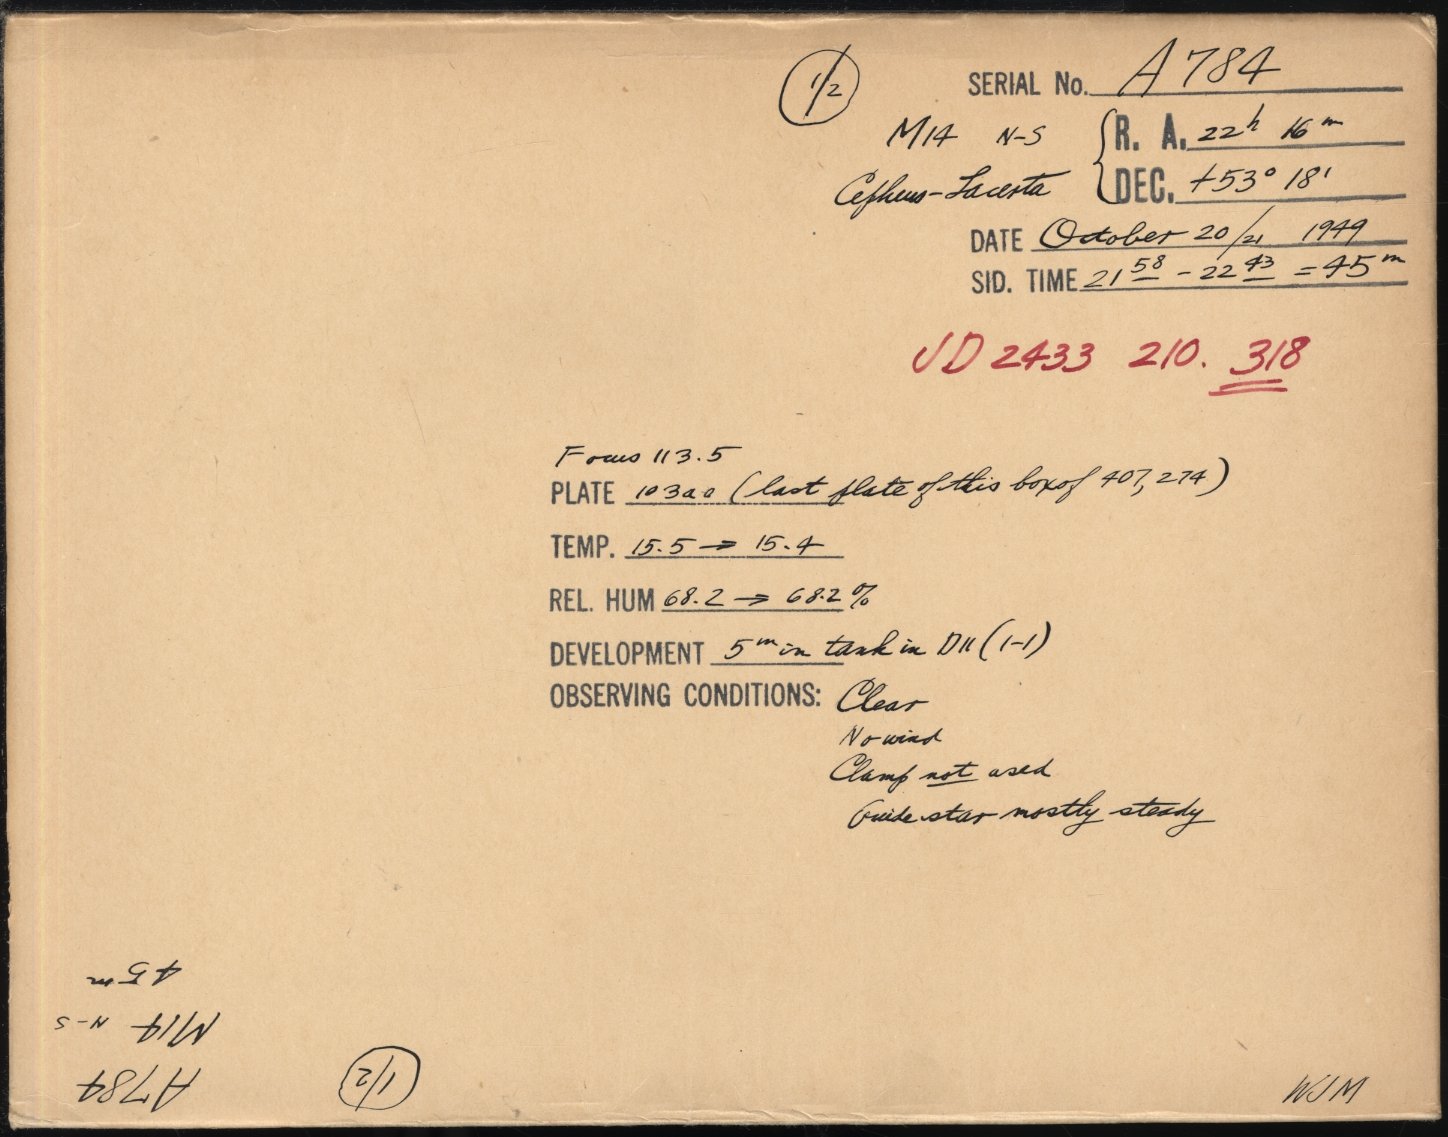 1/2
SERIAL No. A 784
M14 N-S R. A. 22h 16m
Cepheus-Lacerta DEC. +53° 18'
DATE October 20/21 1949
SID. TIME 21 58 - 22 43 = 45m
JD 2433 210. 318
Focus 113.5
PLATE 103aO (last plate of this box of 407, 274)
TEMP. 15.5 → 15.4
REL. HUM 68.2 → 68.2 %
DEVELOPMENT 5m in tank in D11 (1-1)
OBSERVING CONDITIONS: Clear
No wind
Clamp not used
Guide star mostly steady
A784
M14 N-S
45m
1/2
WJM